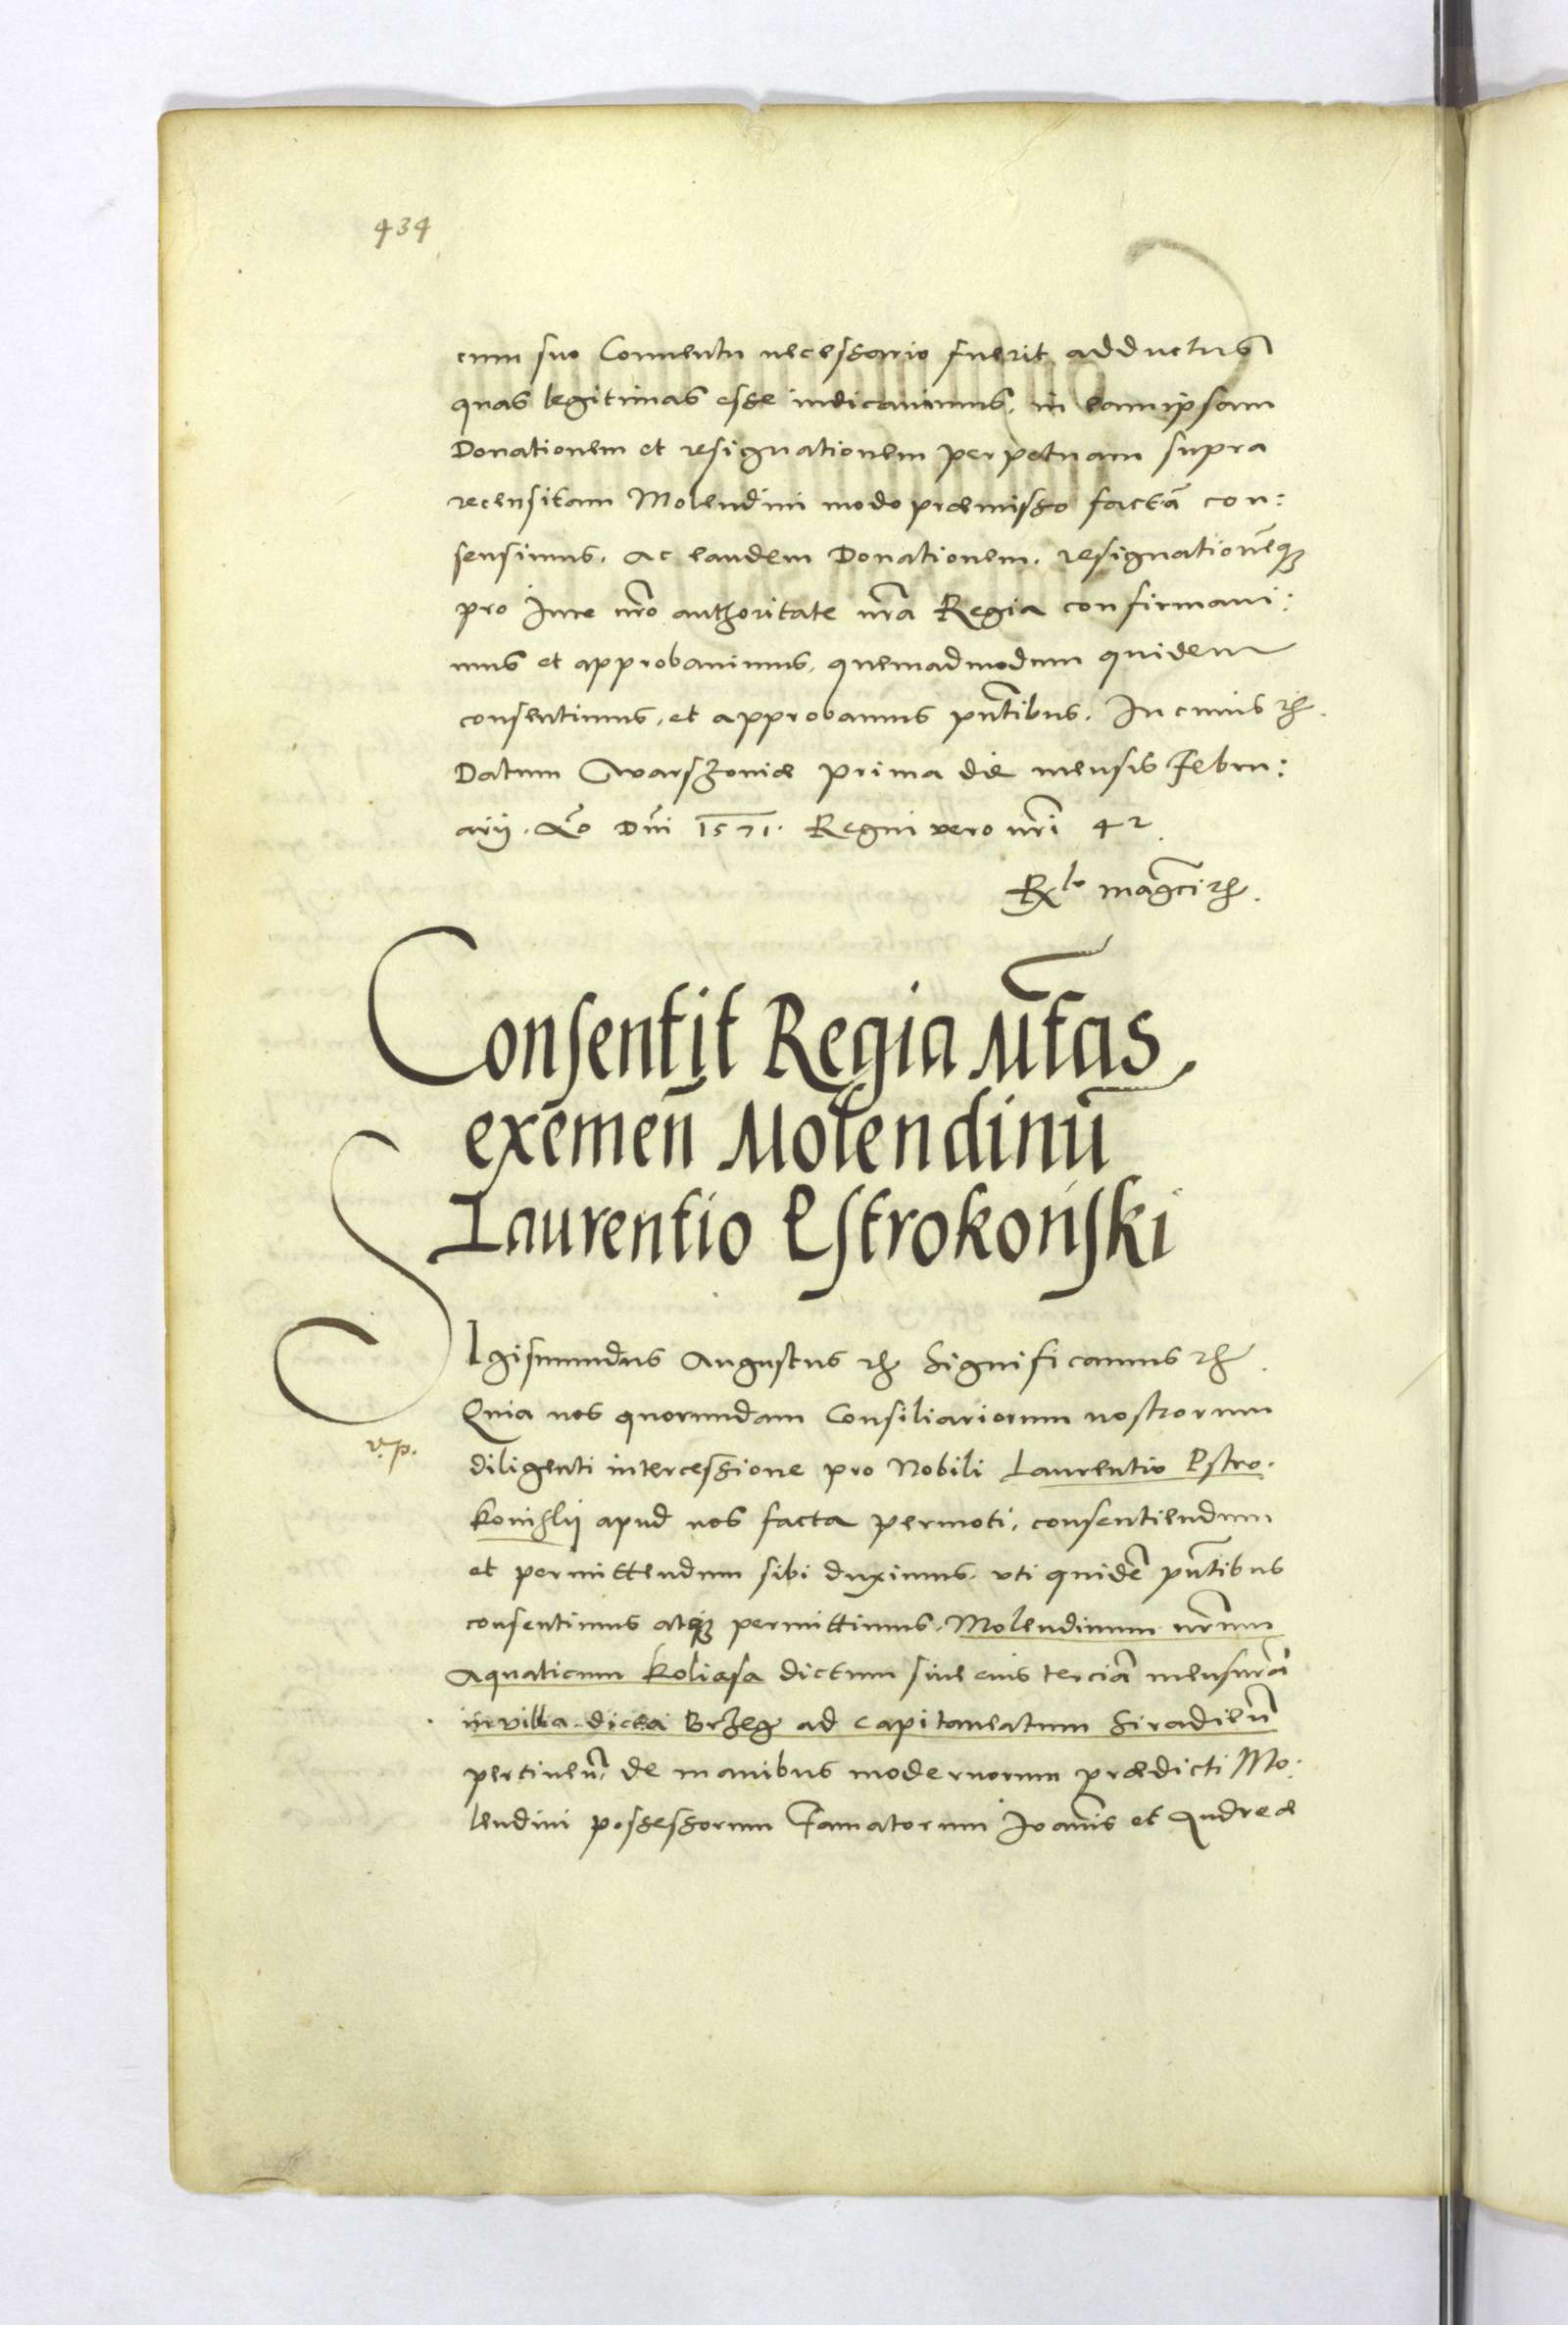 434
cum suo Conuentu necessario fuerit adductus
quas legitimas esse iudicauimus, in eamipsam
Donationem et resignationem perpetuam supra
recensitam Molendini modo præmisso factã con:
sensimus. Ac eandem Donationem, resignationẽq
pro Iure nr̃o authoritate nr̃a Regia confirmaui:
mus et approbauimus, quemadmodum quidem
consentimus, et approbamus pñtibus. In cuius rei
Datum Warszouiæ prima die mensis Febru:
arij. Ao Dñi 1571. Regni vero nr̃i 42
Rlo magci
Consentit Regia Mtas
exemeñ Molendinũ
Laurentio Pstrokoński
SIgismundus Augustus etc Significamus etc
Quia nos quorundam Consiliariorum nostrorum
v. p.
diligenti intercessione pro Nobili Laurentio Pstro.
konisky apud nos facta permoti, consentiendum
et permittendum sibi duximus. vti quidẽ pñtibus
consentimus atq permittimus. Molendinum nr̃um
Aquaticum Koliasa dictum siue eius terciã mensurã
in villa dicta Brzeg ad Capitaneatum Siradieñ
pertineñ, de manibus modernorum prædicti Mo:
lendini possessorum Famatorum Ioañis et Andreæ